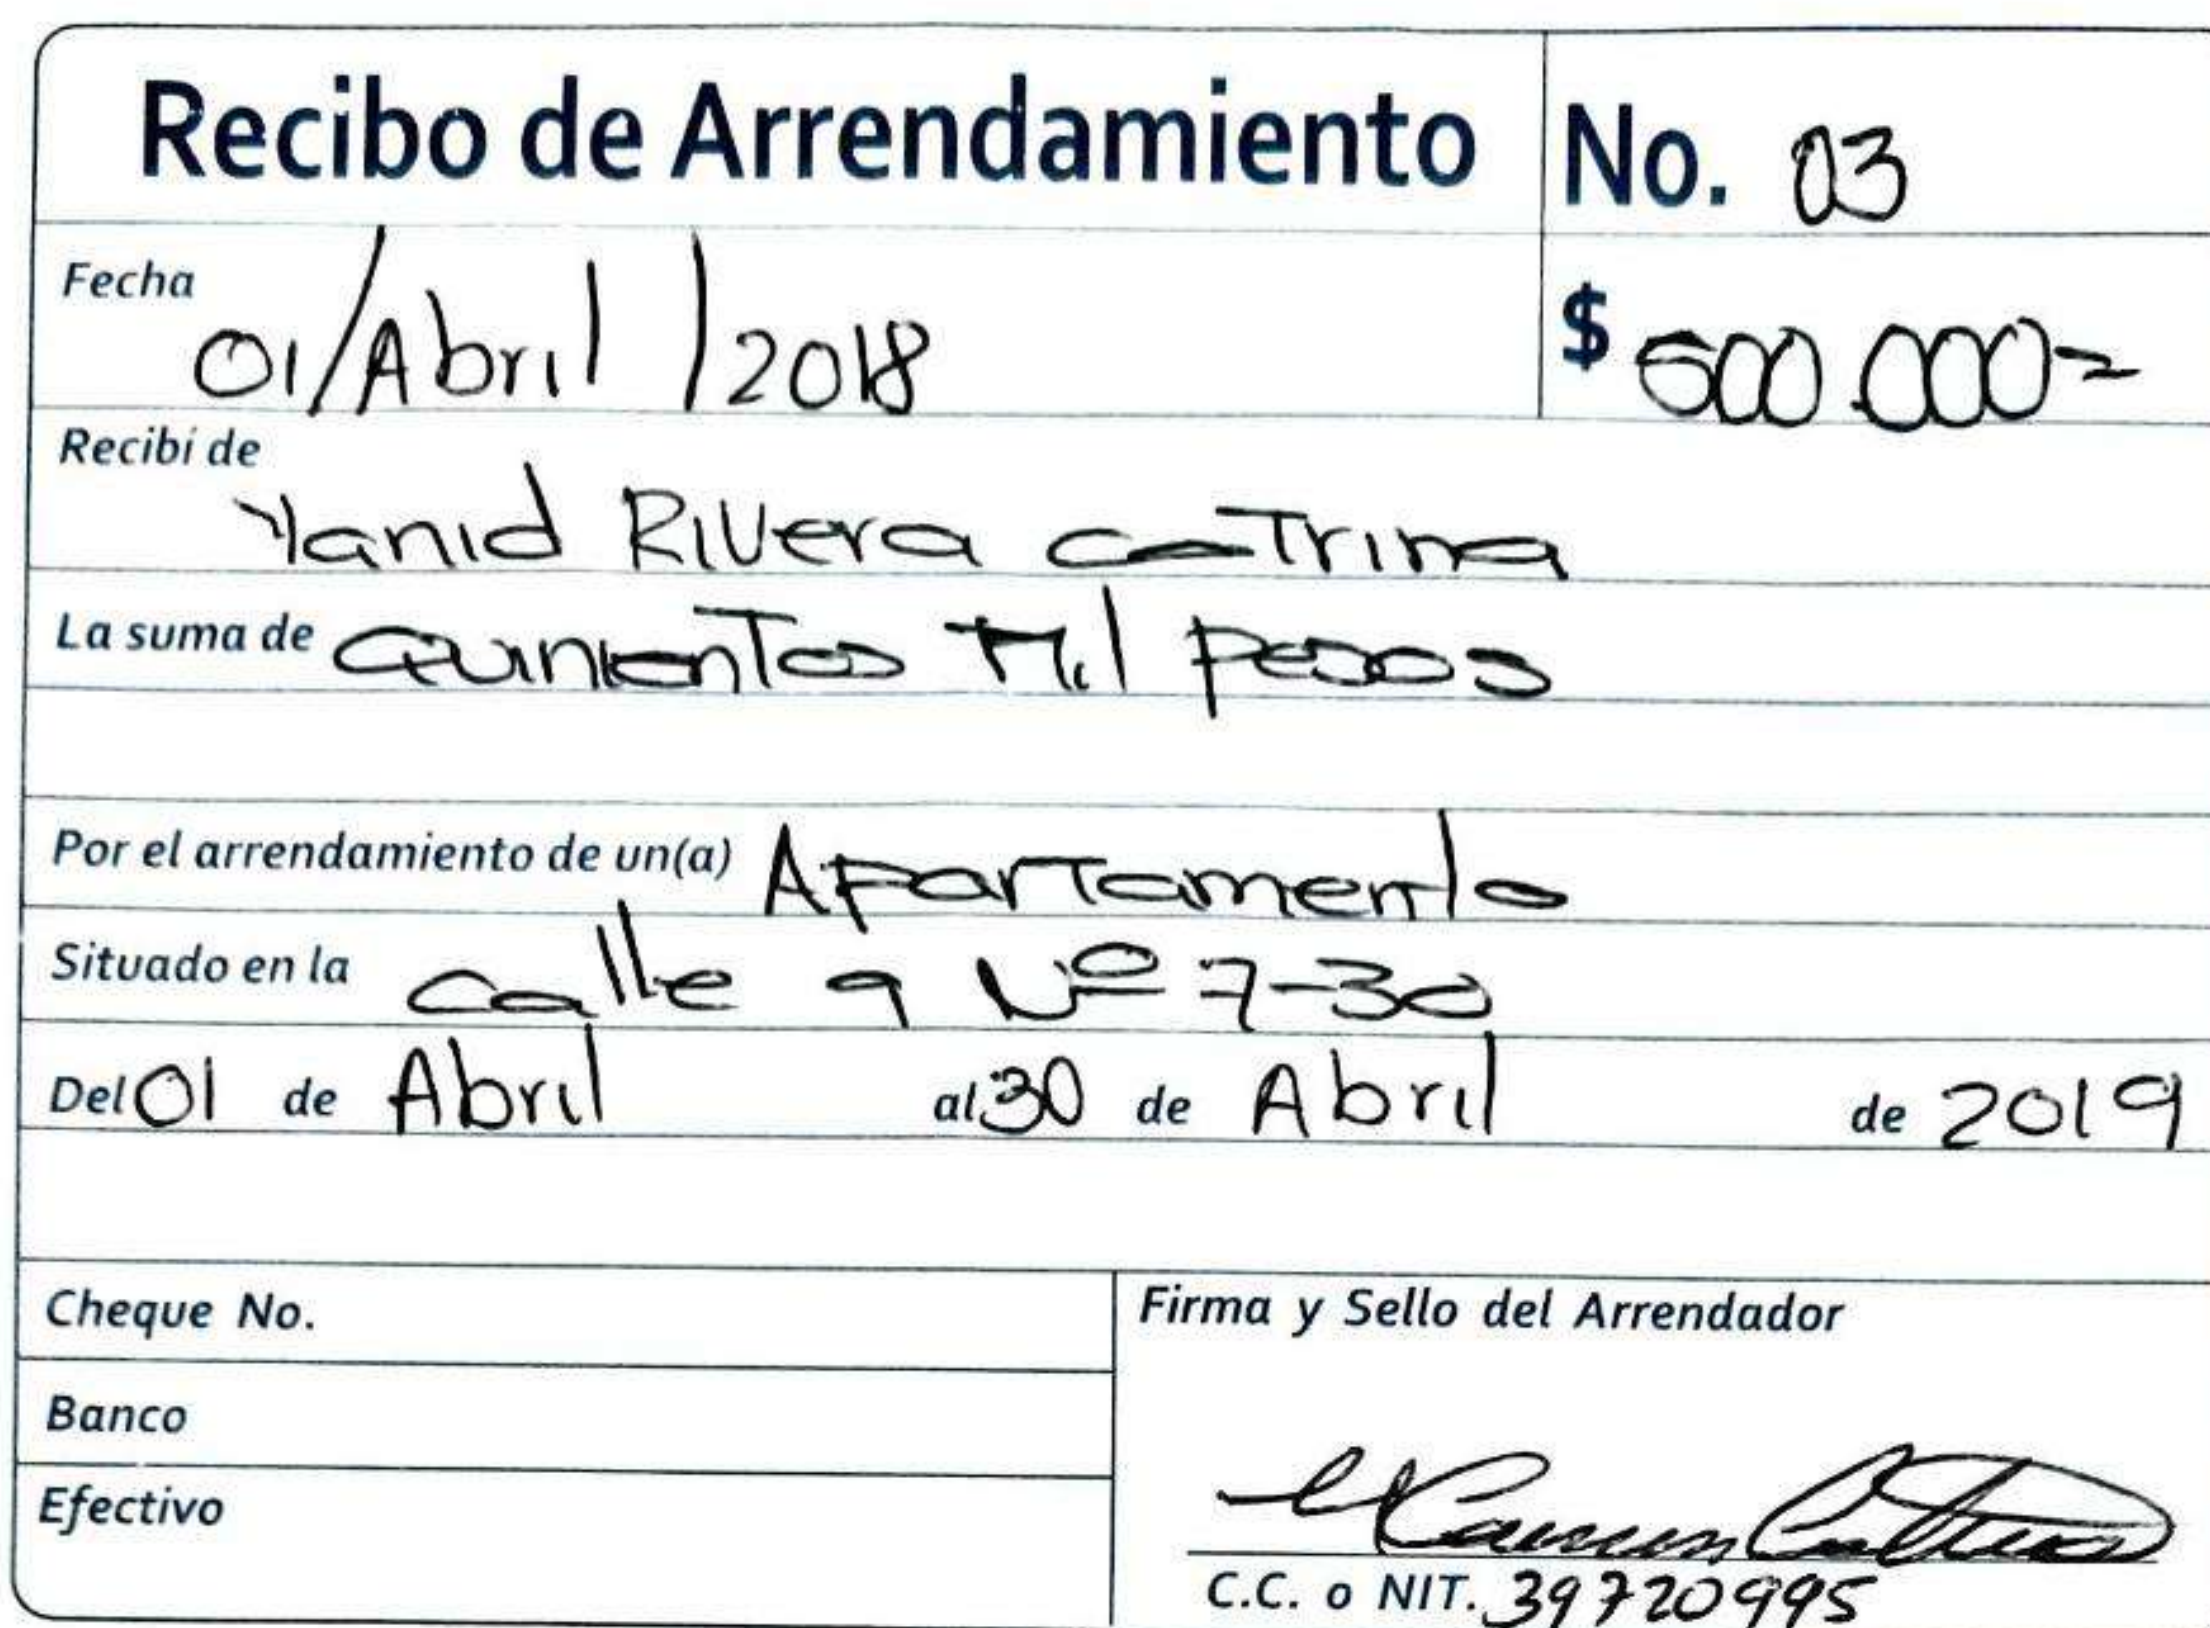 Recibo de Arrendamiento No. 03
Fecha 01/Abril/2018 $ 500.000=
Recibí de Yanid Rivera caTrina
La suma de Quinientos Mil pesos
Por el arrendamiento de un(a) Apartamento
Situado en la calle 9 Nº 7-30
Del 01 de Abril al 30 de Abril de 2019
Cheque No.
Firma y Sello del Arrendador
Banco
Efectivo
C.C. o NIT. 39720995